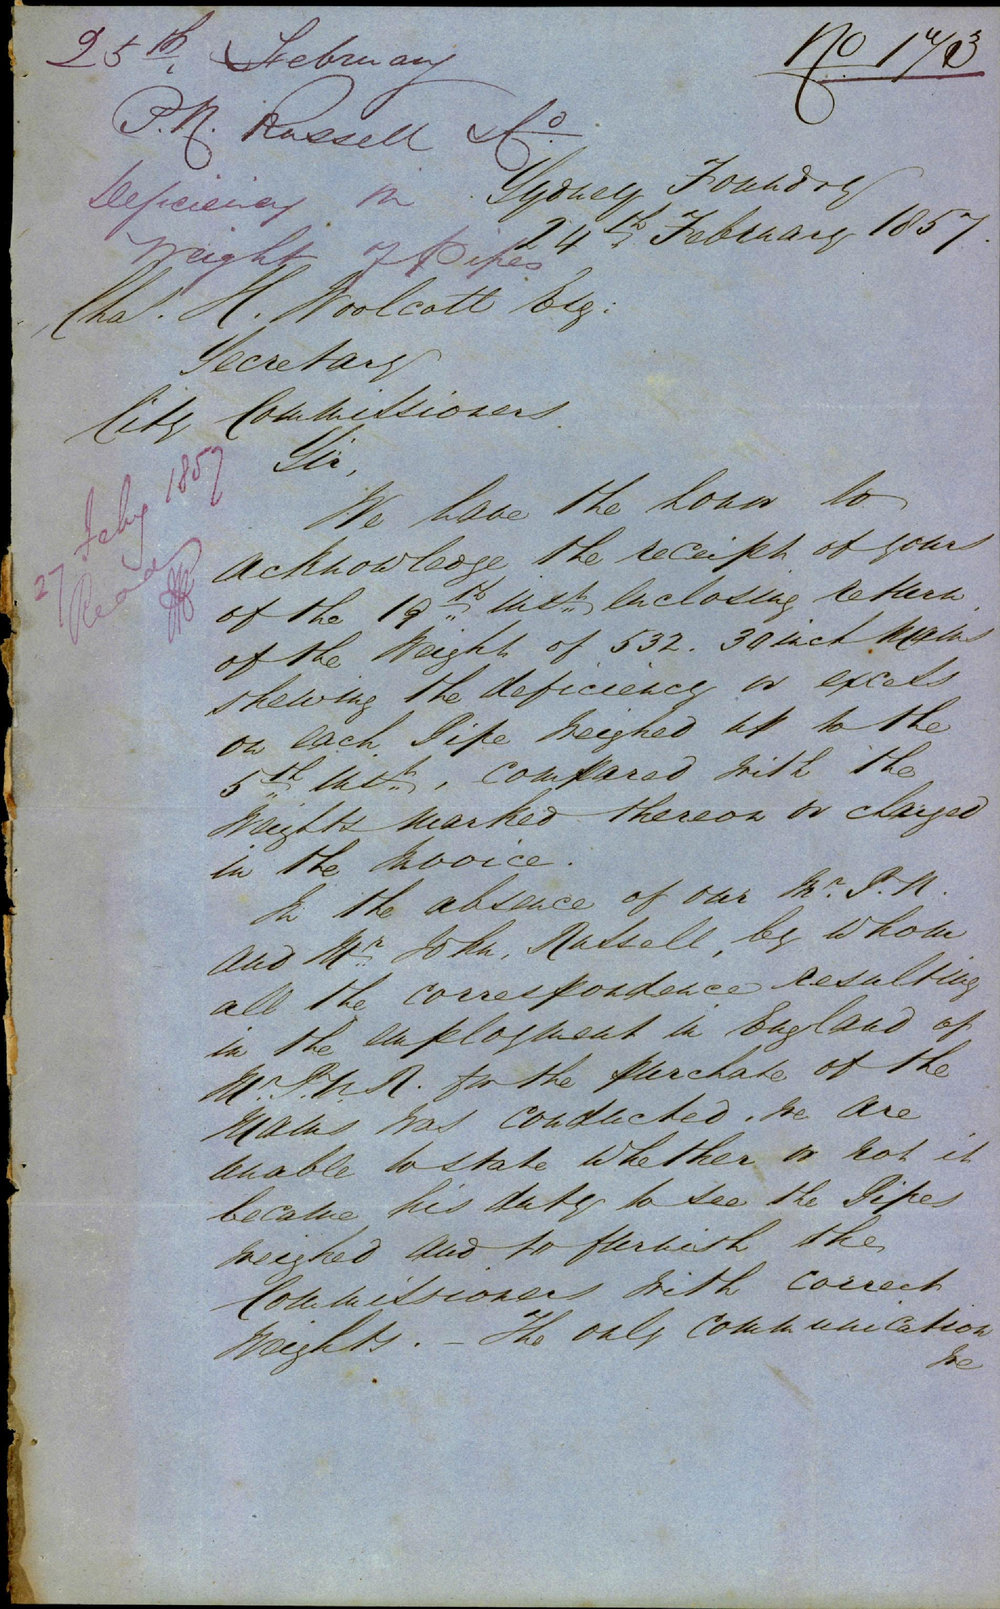 25th February
No 173
P. N. Russell & Co
Deficiency in
Weight of Pipes
Sydney Foundry
24th February 1857.
Chas. H. Woolcott Esq:
Secretary
City Commissioners.
Sir,
27 Feby 1857
Read
We have the honor to
acknowledge the receipt of yours
of the 19th inst enclosing return
of the Weight of 532. 30 inch Mains
shewing the deficiency or excess
on each Pipe weighed up to the
5th inst, compared with the
Weights marked thereon or charged
in the invoice.
In the absence of our Mr. P. N.
and Mr John Russell, by whom
all the correspondence resulting
in the employment in England of
Mr. P. N. R. for the purchase of the
Mains was conducted, we are
unable to state whether or not it
became his duty to see the Pipes
weighed and to furnish the
Commissioners with correct
Weights. - The only communication
we